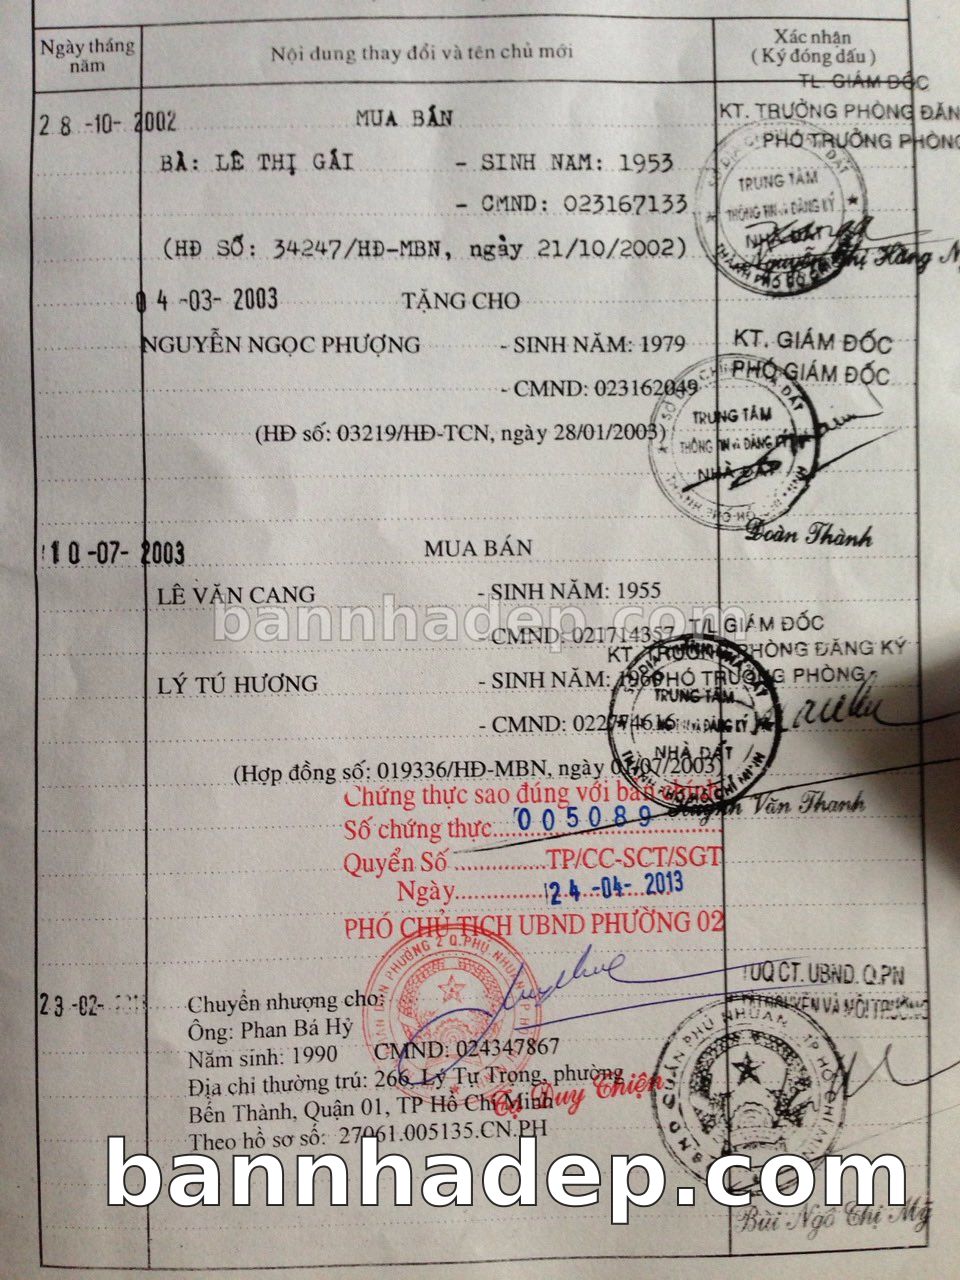 Ngày tháng năm
Nội dung thay đổi và tên chủ mới
Xác nhận
( Ký đóng dấu )
TL. GIÁM ĐỐC
28-10-2002
MUA BÁN
KT. TRƯỞNG PHÒNG ĐĂN
PHÓ TRƯỞNG PHÒNG
BÀ: LÊ THỊ GÁI
- SINH NAM: 1953
- CMND: 023167133
TRUNG TÂM
THÔNG TIN và ĐĂNG KÝ
NHÀ ĐẤT
(HĐ SỐ: 34247/HĐ-MBN, ngày 21/10/2002)
Nguyễn Thị Hồng
04-03-2003
TẶNG CHO
NGUYỄN NGỌC PHƯỢNG
- SINH NĂM: 1979
KT. GIÁM ĐỐC
PHÓ GIÁM ĐỐC
- CMND: 023162049
TRUNG TÂM
THÔNG TIN và ĐĂNG KÝ
NHÀ ĐẤT
(HĐ số: 03219/HĐ-TCN, ngày 28/01/2003)
Đoàn Thành
10-07-2003
MUA BÁN
LÊ VĂN CANG
- SINH NĂM: 1955
bannhadep.com
T/L GIÁM ĐỐC
- CMND: 021714357
KT. TRƯỞNG PHÒNG ĐĂNG KÝ
LÝ TÚ HƯƠNG
- SINH NĂM: 1960
PHÓ TRƯỞNG PHÒNG
TRUNG TÂM
- CMND: 022774616
NHÀ ĐẤT
(Hợp đồng số: 019336/HĐ-MBN, ngày 01/07/2003)
Chứng thực sao đúng với bản chính
Huỳnh Văn Thanh
Số chứng thực 005089
Quyển Số ..............TP/CC-SCT/SGT
Ngày 24-04-2013
PHÓ CHỦ TỊCH UBND PHƯỜNG 02
TUQ CT. UBND. Q.PN
23-02-
Chuyển nhượng cho:
Ông: Phan Bá Hỷ
Năm sinh: 1990 CMND: 024347867
Địa chỉ thường trú: 266, Lý Tự Trọng, phường
Bến Thành, Quận 01, TP Hồ Chí Minh
Tạ Duy Thiện
Theo hồ sơ số: 27061.005135.CN.PH
bannhadep.com
Bùi Ngô Thị Mỹ